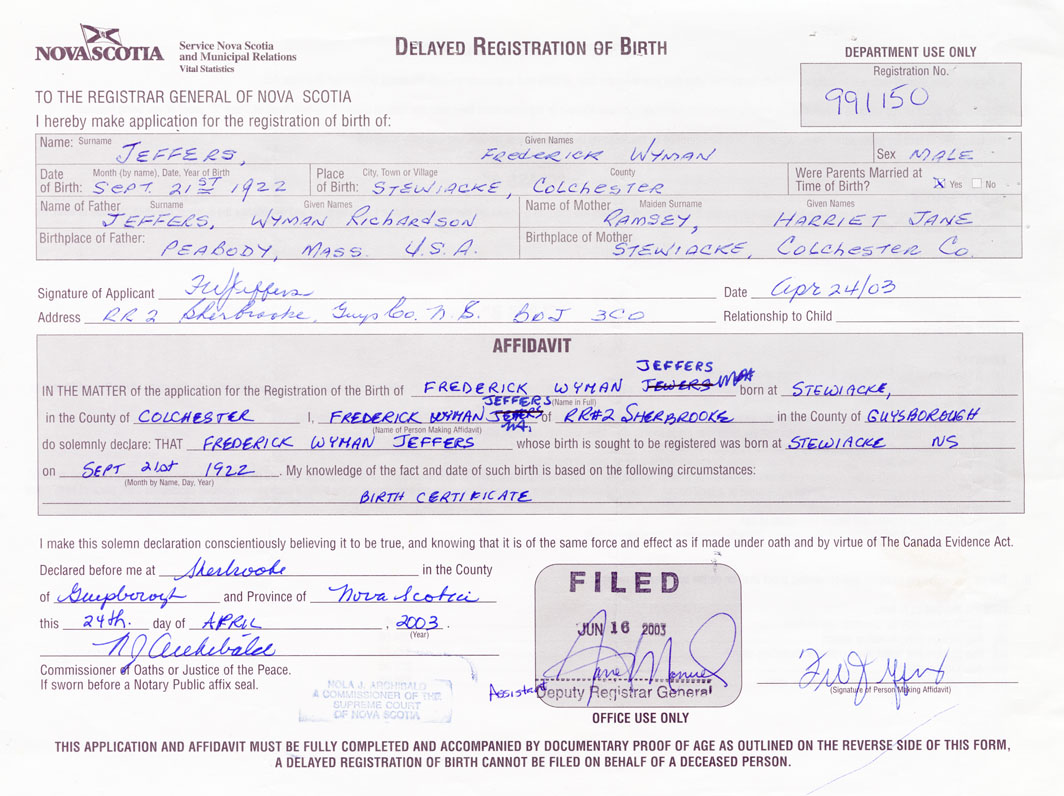 NOVA SCOTIA
Service Nova Scotia
and Municipal Relations
Vital Statistics
DELAYED REGISTRATION OF BIRTH
DEPARTMENT USE ONLY
Registration No.
991150
TO THE REGISTRAR GENERAL OF NOVA SCOTIA
I hereby make application for the registration of birth of:
Name: Surname JEFFERS, Given Names FREDERICK WYMAN Sex MALE
Date of Birth: Month (by name), Date, Year of Birth SEPT. 21ST 1922 Place of Birth: City, Town or Village STEWIACKE, County COLCHESTER Were Parents Married at Time of Birth? X Yes No
Name of Father Surname JEFFERS, Given Names WYMAN RICHARDSON Name of Mother Maiden Surname RAMSEY, Given Names HARRIET JANE
Birthplace of Father: PEABODY, MASS. U.S.A. Birthplace of Mother STEWIACKE, COLCHESTER CO.
Signature of Applicant FW Jeffers Date Apr 24/03
Address RR 2 Sherbrooke, Guys Co. N.S. B0J 3C0 Relationship to Child
AFFIDAVIT
JEFFERS
IN THE MATTER of the application for the Registration of the Birth of FREDERICK WYMAN born at STEWIACKE,
JEFFERS (Name in Full)
in the County of COLCHESTER I, FREDERICK WYMAN of RR#2 SHERBROOKE in the County of GUYSBOROUGH
(Name of Person Making Affidavit)
do solemnly declare: THAT FREDERICK WYMAN JEFFERS whose birth is sought to be registered was born at STEWIACKE NS
on SEPT 21st 1922. My knowledge of the fact and date of such birth is based on the following circumstances:
(Month by Name, Day, Year)
BIRTH CERTIFICATE
I make this solemn declaration conscientiously believing it to be true, and knowing that it is of the same force and effect as if made under oath and by virtue of The Canada Evidence Act.
Declared before me at Sherbrooke in the County
of Guysborough and Province of Nova Scotia
this 24th. day of APRIL, 2003.
(Year)
NJ Archibald
Commissioner of Oaths or Justice of the Peace.
If sworn before a Notary Public affix seal.
NOLA J. ARCHIBALD
A COMMISSIONER OF THE
SUPREME COURT
OF NOVA SCOTIA
FILED
JUN 16 2003
Assistant Deputy Registrar General
OFFICE USE ONLY
FW Jeffers
(Signature of Person Making Affidavit)
THIS APPLICATION AND AFFIDAVIT MUST BE FULLY COMPLETED AND ACCOMPANIED BY DOCUMENTARY PROOF OF AGE AS OUTLINED ON THE REVERSE SIDE OF THIS FORM,
A DELAYED REGISTRATION OF BIRTH CANNOT BE FILED ON BEHALF OF A DECEASED PERSON.